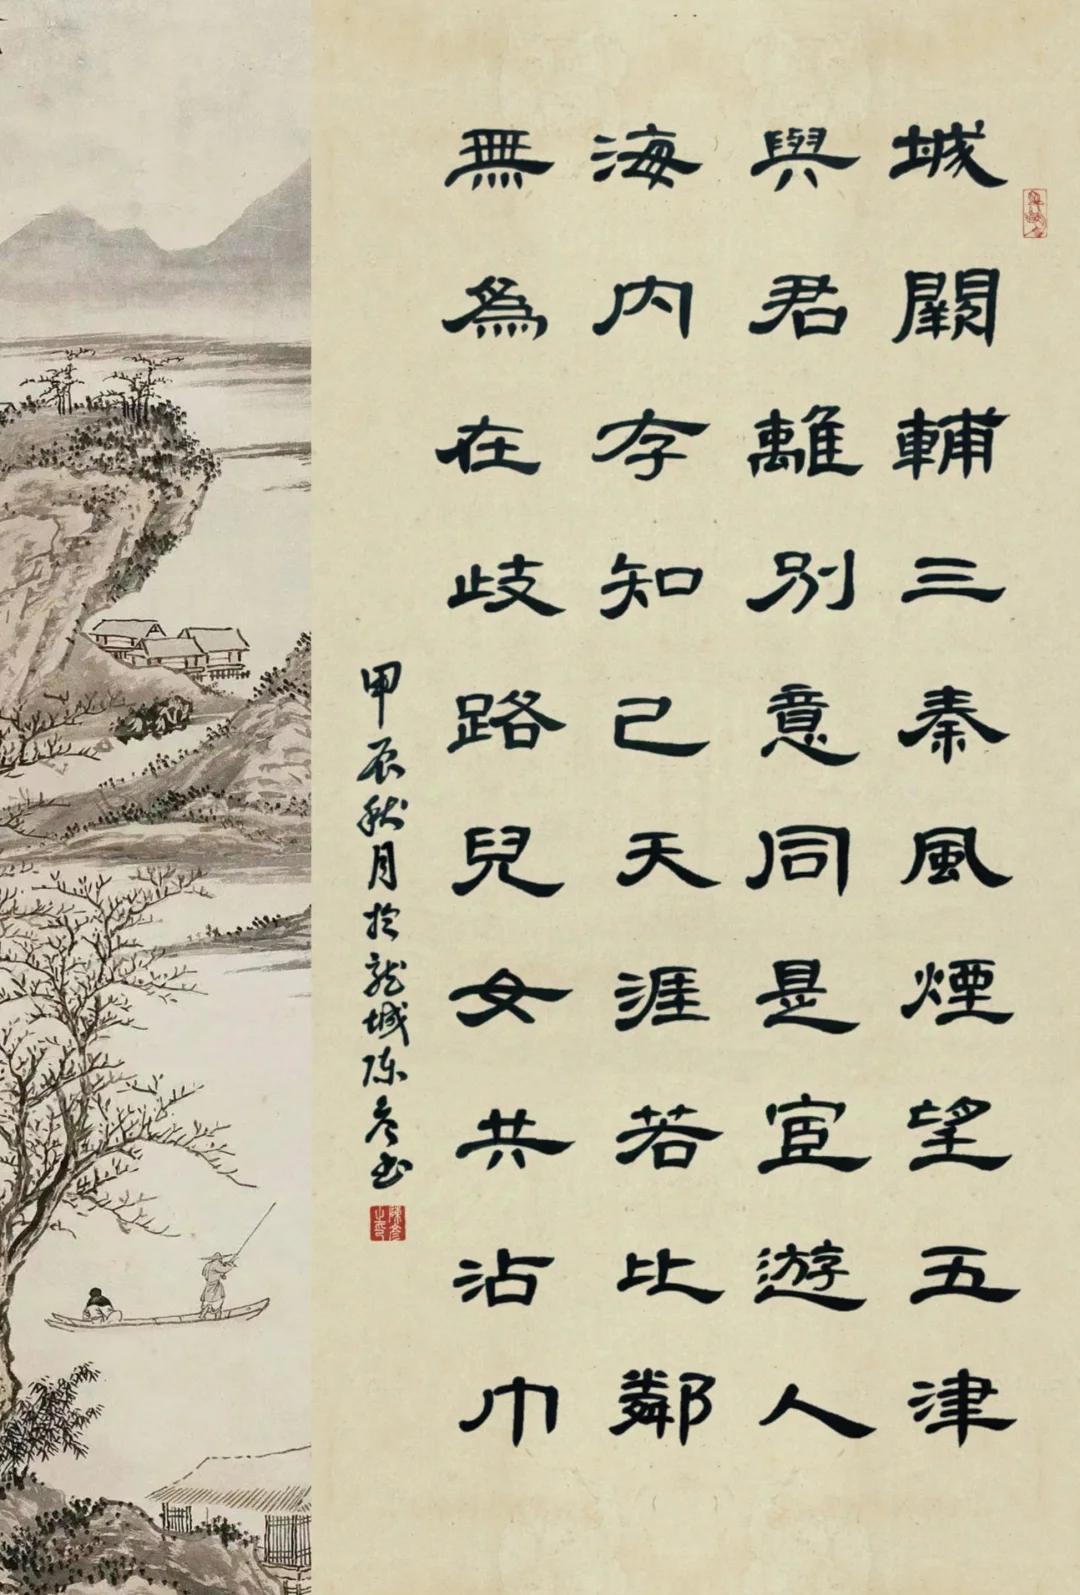 城闕輔三秦風煙望五津
與君離別意同是宦遊人
海內存知己天涯若比鄰
無為在歧路兒女共沾巾
甲辰秋月於龙城陈彦书